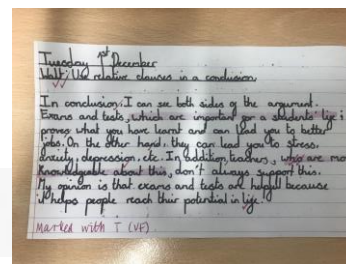 Tuesday 1st December
Walt: Use relative clauses in a conclusion
In conclusion, I can see both sides of the argument.
Exams and tests, which are important for a students life i
proves what you have learnt and can lead you to better
jobs. On the other hand, they can lead you to stress,
anxiety, depression, etc. In addition, teachers, who are mo
knowledgeable about this, don't always support this.
My opinion is that exams and tests are helpful because
it helps people reach their potential in life.
Marked with T (VF)